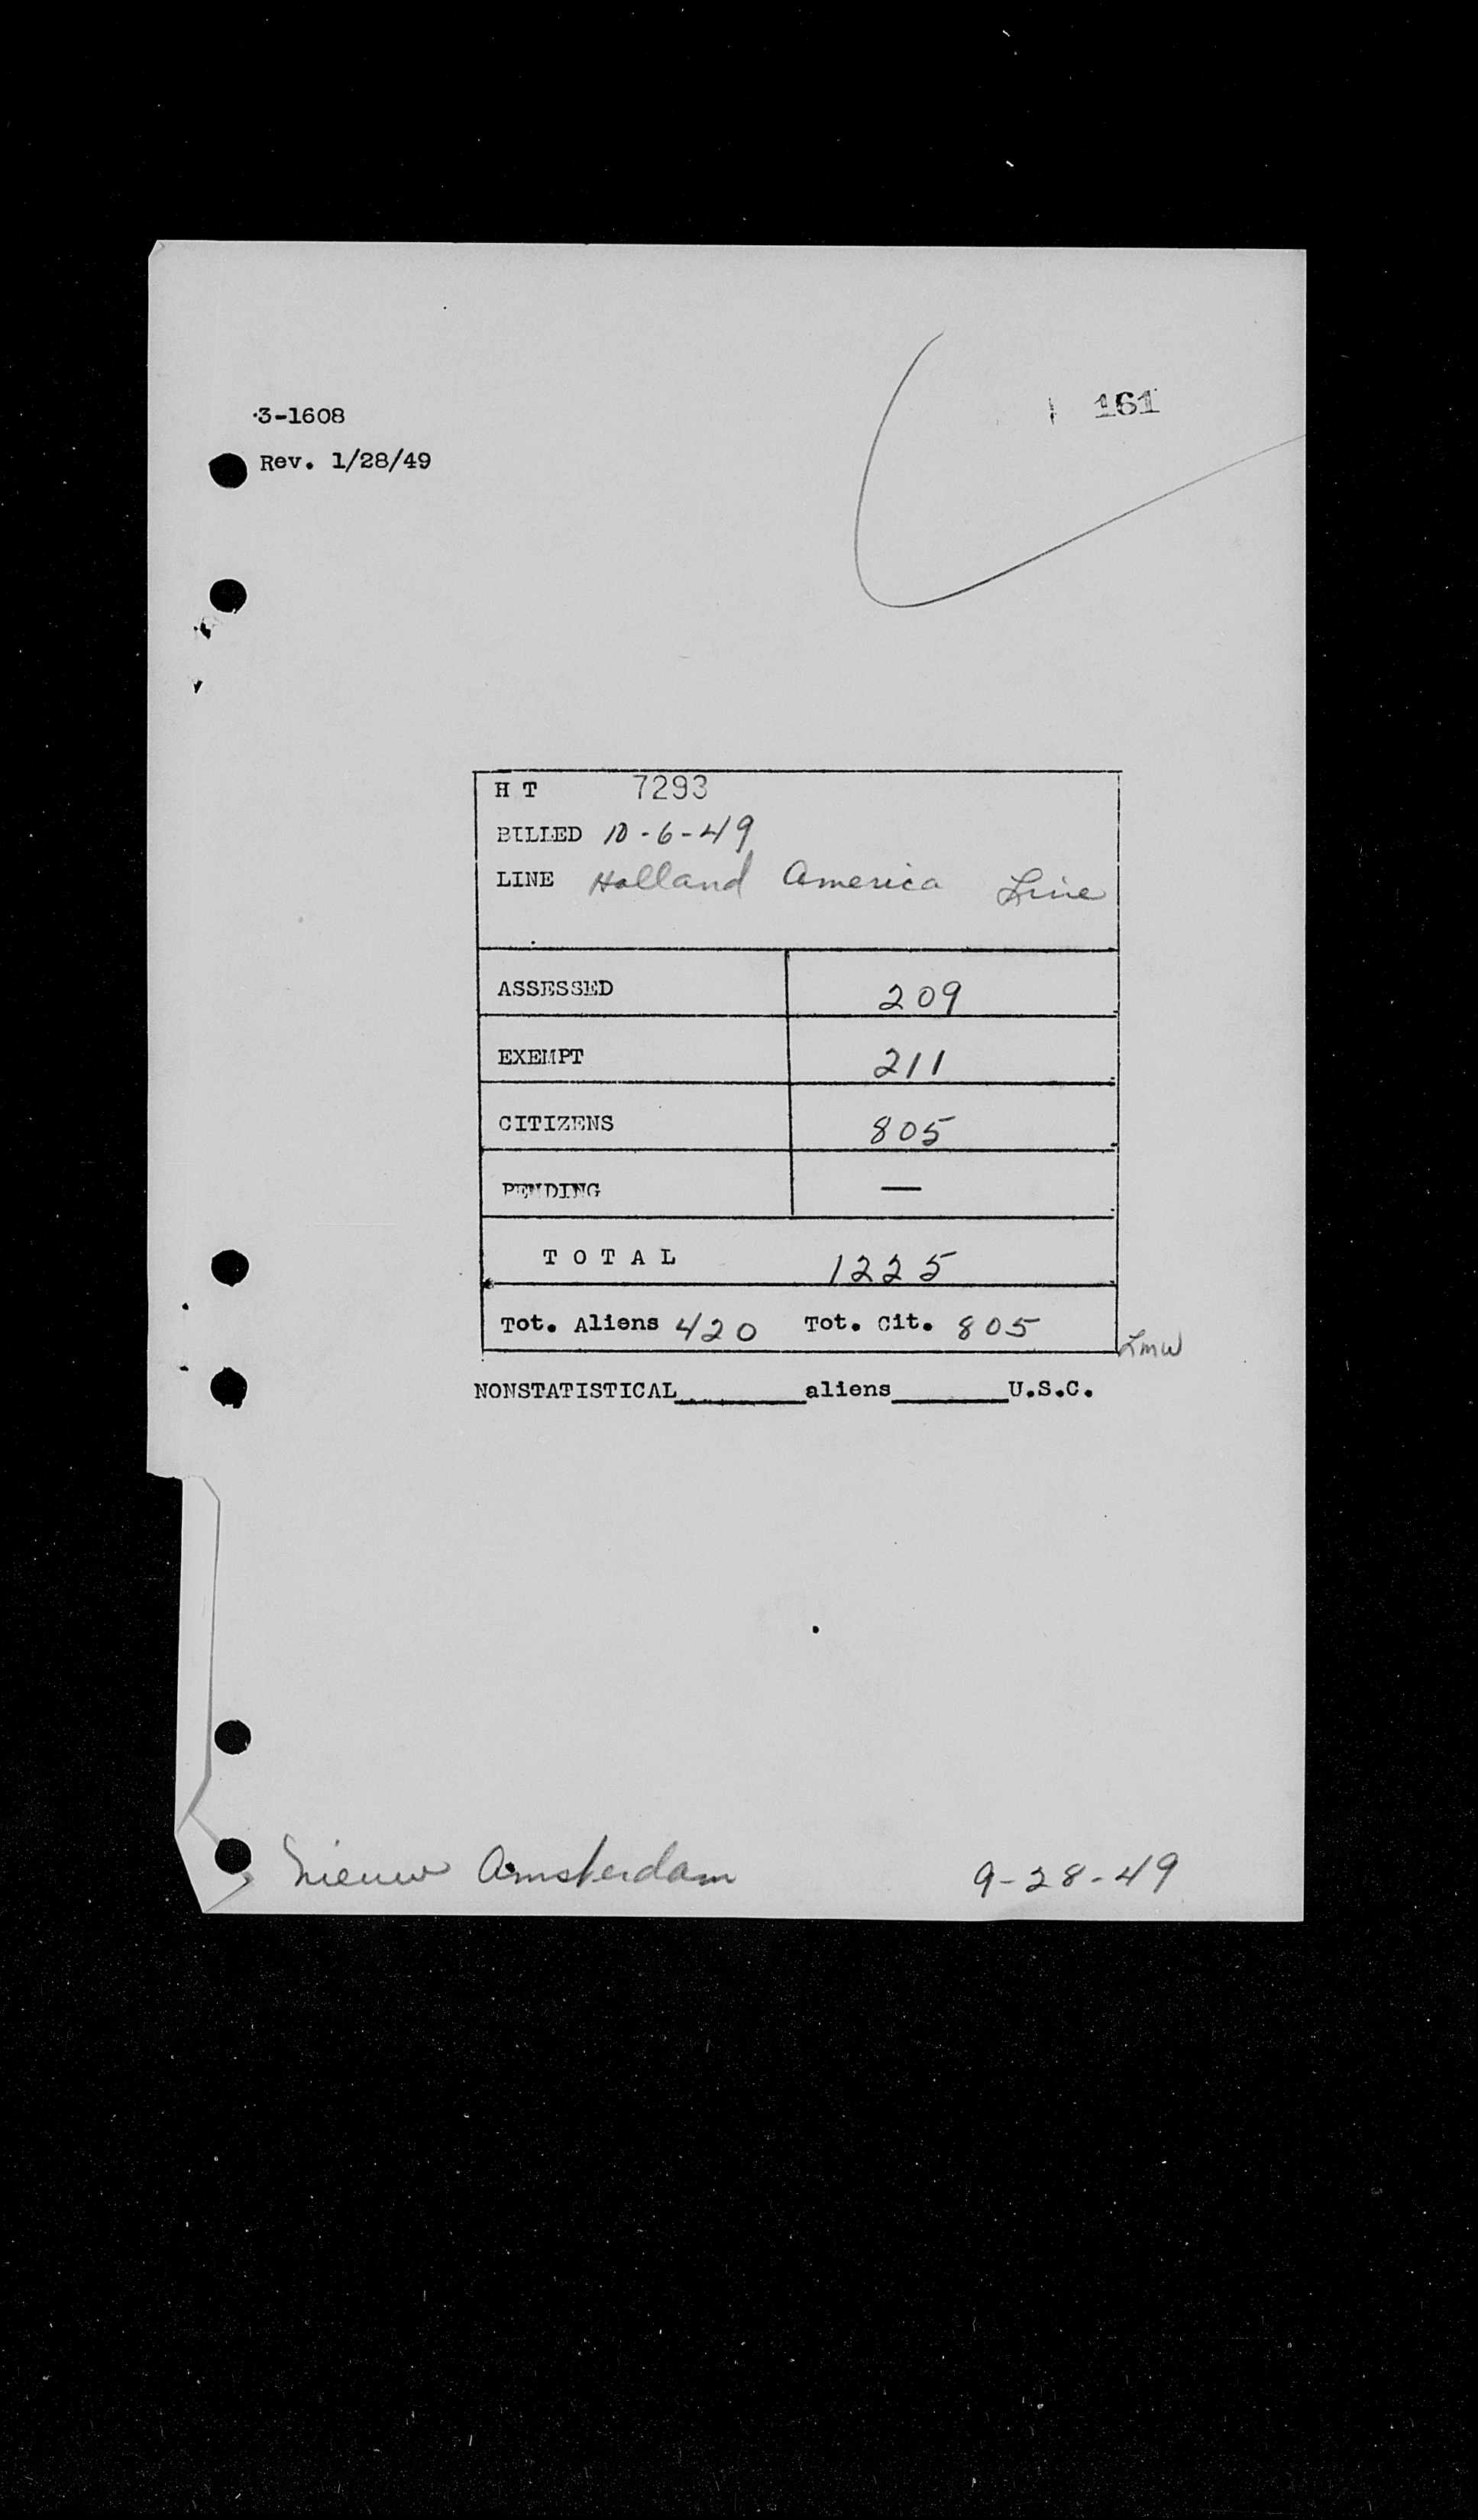 161
3-1608
Rev. 1/28/49
H T 7293
BILLED 10-6-49
LINE Holland America Line
ASSESSED 209
EXEMPT 211
CITIZENS 805
PENDING —
T O T A L 1225
Tot. Aliens 420 Tot. Cit. 805
LMW
NONSTATISTICAL________aliens________U.S.C.
Nieuw Amsterdam 9-28-49